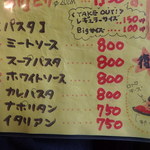 TAKE OUT!
レギュラーサイズ 150円
Bigサイズ 100円
パスタ】
ミートソース 800
スープパスタ 800
ホワイトソース 800
カレパスタ 800
ナポリタン 750
イタリアン 750